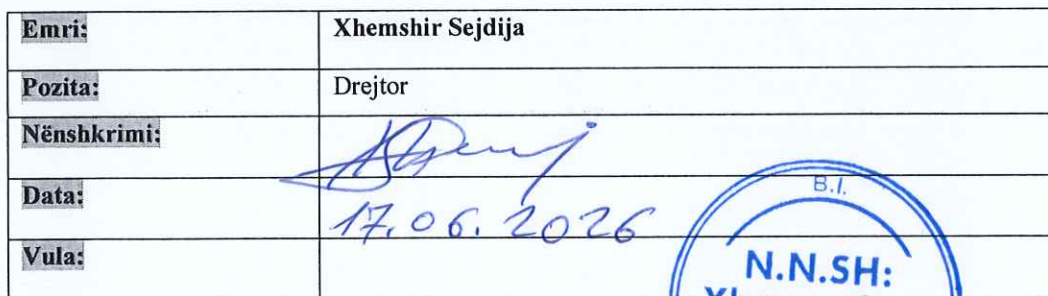 Emri: Xhemshir Sejdija
Pozita: Drejtor
Nënshkrimi:
Data: 17.06.2026
Vula:
B.I.
N.N.SH: